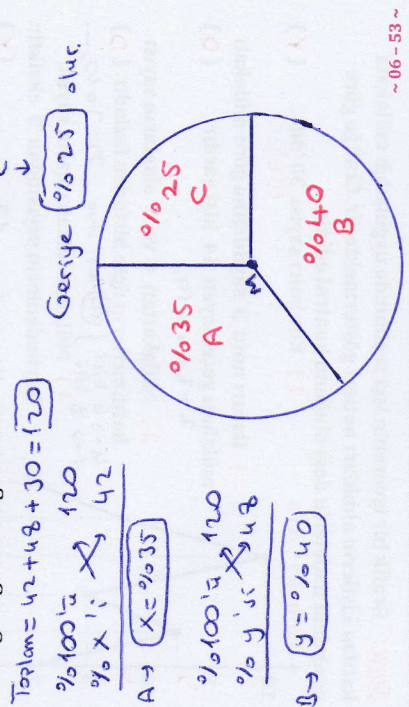 Toplam = 42+48+30 = 120
%100'ü 120
%x'i 42
A → x = %35
%100'ü 120
%y'si 48
B → y = %40
C
↓
Geriye %25 olur.
%35
A
%25
C
%40
B
M
~ 06 - 53 ~